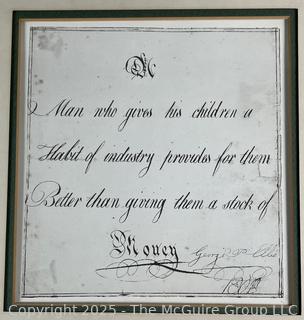 A
Man who gives his children a
Habit of industry provides for them
Better than giving them a stock of
Money
Copyright 2025 - The McGuire Group LLC